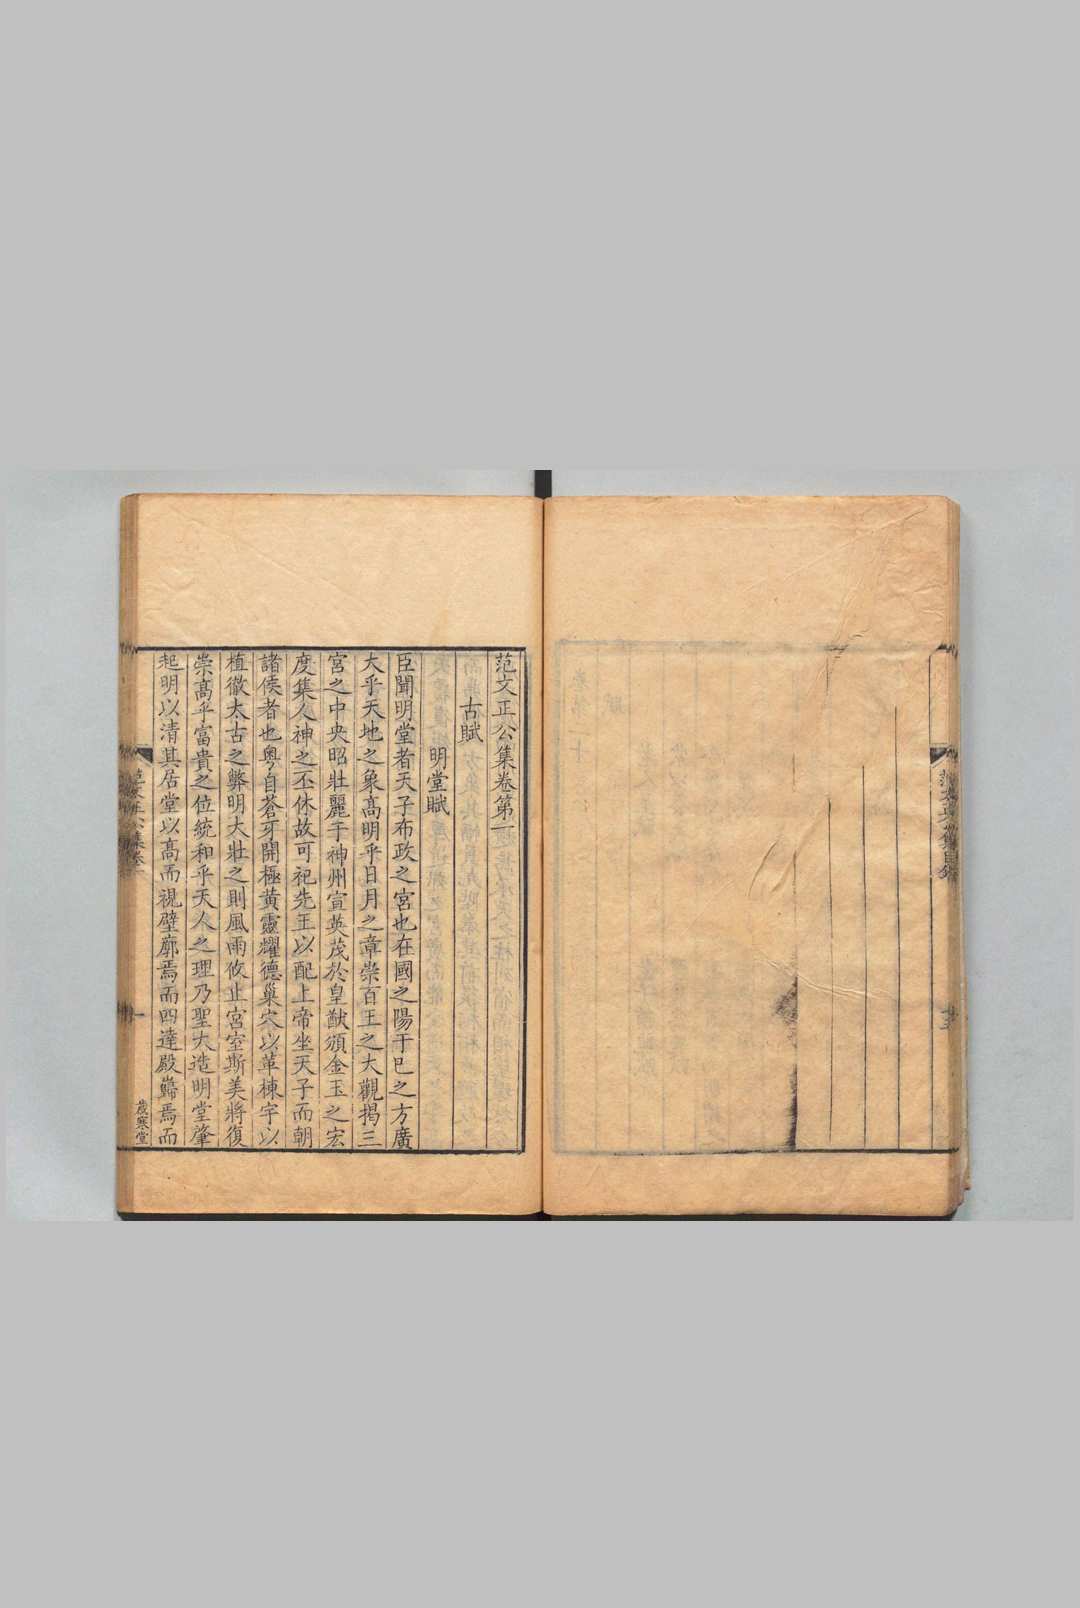 范文正公集卷第一
古賦
明堂賦
臣聞明堂者天子布政之宮也在國之陽于巳之方廣
大乎天地之象高明乎日月之章崇百王之大觀揭三
宮之中央昭壯麗于神州宣英茂於皇猷頒金玉之宏
度集人神之丕休故可祀先王以配上帝坐天子而朝
諸侯者也粤自蒼牙開極黃靈耀德巢穴以革棟宇以
植徹太古之弊明大壯之則風雨攸止宮室斯美將復
崇高乎富貴之位統和乎天人之理乃聖大造明堂肇
起明以清其居堂以高而視壁廓焉而四達殿巋焉而
歲寒堂